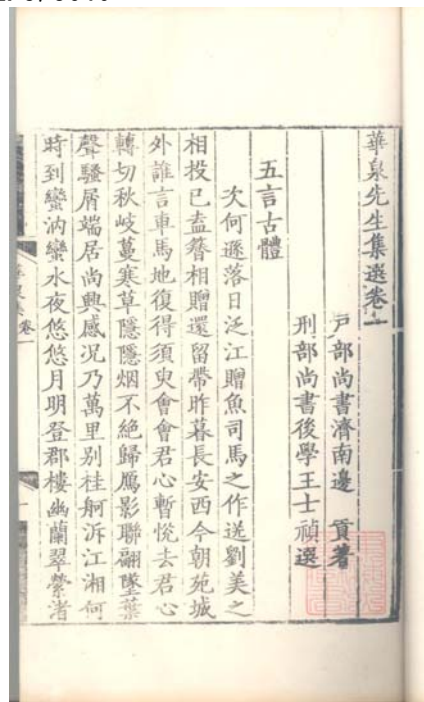 華泉先生集選卷一
戸部尚書濟南邊 貢著
刑部尚書後學王士禎選
五言古體
次何遜落日泛江贈魚司馬之作送劉美之
相投已盍簪相贈還留帶昨暮長安西今朝苑城
外誰言車馬地復得須臾會會君心暫悅去君心
轉切秋岐蔓寒草隱隱烟不絕歸鴈影聯翩墜葉
聲騷屑端居尚興感況乃萬里别桂舸泝江湘何
時到蠻汭蠻水夜悠悠月明登郡樓幽蘭翠縈渚
卷一